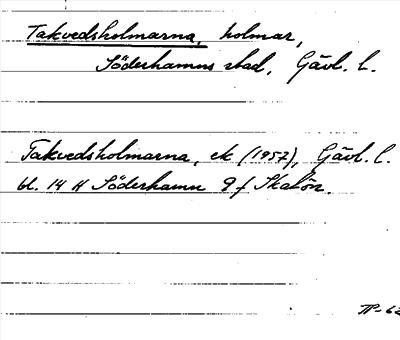 Takvedsholmarna, holmar,
Söderhamns stad, Gävl. l.
Takvedsholmarna, ek (1957), Gävl. l.
bl. 14 H Söderhamn 9 f Skatön.